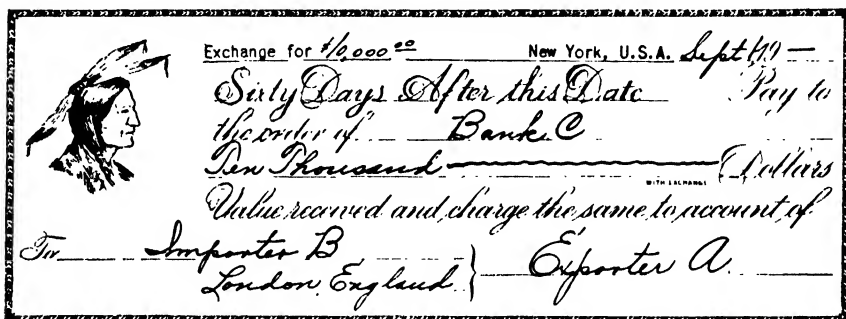 Exchange for $10,000 00 New York, U.S.A. Sept 1, 19 —
Sixty Days After this Date Pay to
the order of Bank C
Ten Thousand Dollars
WITH EXCHANGE
Value received and charge the same to account of
To Importer B
London, England } Exporter A